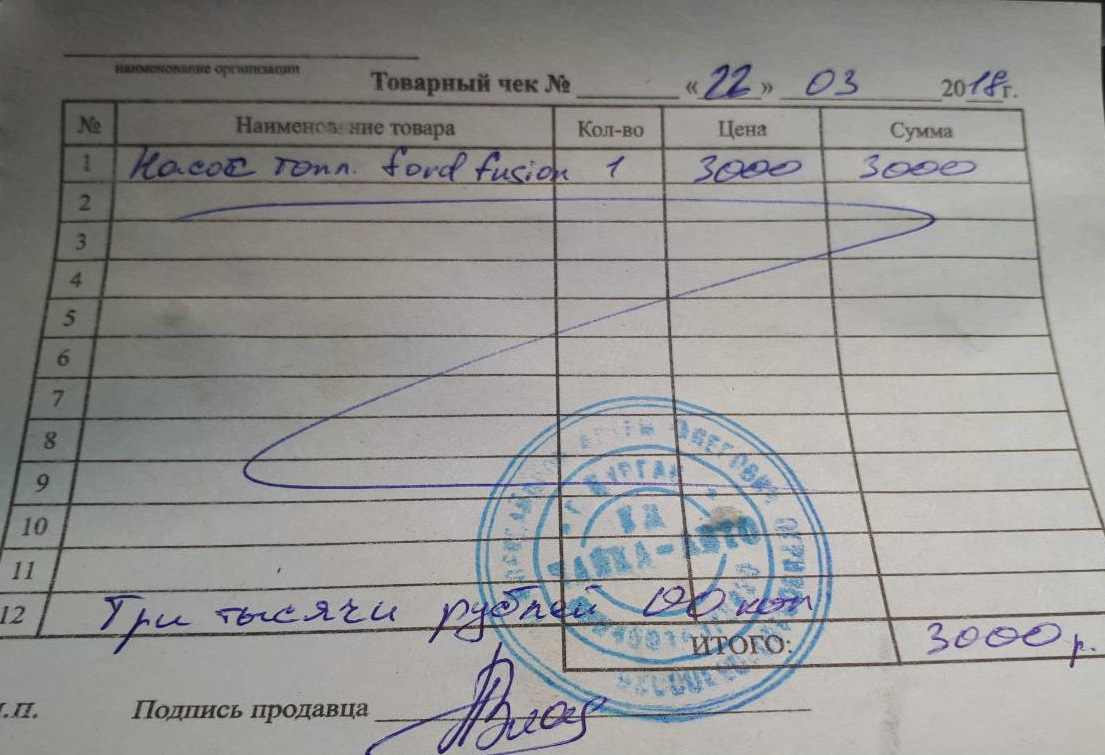 наименование организации
Товарный чек № «22» 03 2018г.
№ Наименование товара Кол-во Цена Сумма
1 Насос топл. ford fusion 1 3000 3000
2
3
4
5
6
7
8
9
10
11
12 Три тысячи рублей 00 коп
ИТОГО: 3000 р.
г. КУРГАН
ОЛЕГОВИЧ
.П. Подпись продавца